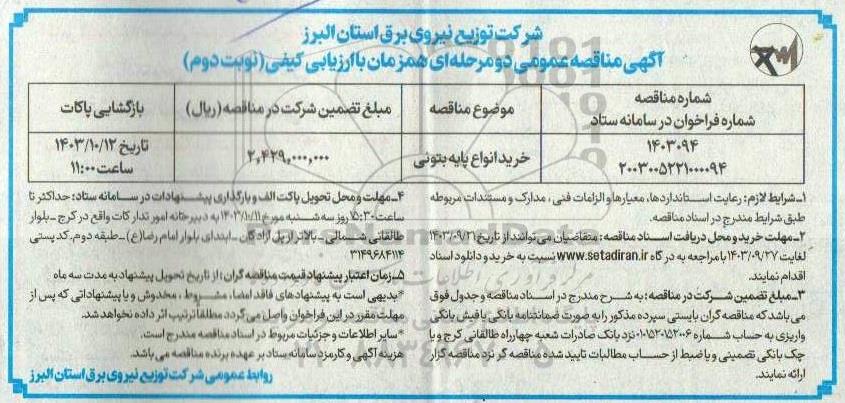 شرکت توزیع نیروی برق استان البرز
آگهی مناقصه عمومی دو مرحله ای همزمان با ارزیابی کیفی (نوبت دوم)
شماره مناقصه
شماره فراخوان در سامانه ستاد
موضوع مناقصه
مبلغ تضمین شرکت در مناقصه (ریال)
بازگشایی پاکات
۱۴۰۳۰۹۴
۲۰۰۳۰۰۵۲۲۱۰۰۰۰۹۴
خرید انواع پایه بتونی
۲,۴۲۹,۰۰۰,۰۰۰
تاریخ ۱۴۰۳/۱۰/۱۲
ساعت ۱۱:۰۰
۱ـ شرایط لازم: رعایت استانداردها، معیارها و الزامات فنی، مدارک و مستندات مربوطه
طبق شرایط مندرج در اسناد مناقصه.
۲ـ مهلت خرید و محل دریافت اسناد مناقصه: متقاضیان می‌توانند از تاریخ ۱۴۰۳/۰۹/۲۱
لغایت ۱۴۰۳/۰۹/۲۷ با مراجعه به درگاه www.setadiran.ir نسبت به خرید و دانلود اسناد
اقدام نمایند.
۳ـ مبلغ تضمین شرکت در مناقصه: به شرح مندرج در اسناد مناقصه و جدول فوق
می باشد که مناقصه گران بایستی سپرده مذکور را به صورت ضمانتنامه بانکی یا فیش بانکی
واریزی به حساب شماره ۰۱۰۱۵۲۰۱۵۲۰۰۶ نزد بانک صادرات شعبه چهارراه طالقانی کرج و یا
چک بانکی تضمینی و یا ضبط از حساب مطالبات تایید شده مناقصه گر نزد مناقصه گزار
ارائه نمایند.
۴ـ مهلت و محل تحویل پاکت الف و بارگذاری پیشنهادات در سامانه ستاد: حداکثر تا
ساعت ۱۵:۳۰ روز سه شنبه مورخ ۱۴۰۳/۱۰/۱۱ به دبیرخانه امور تدارکات واقع در کرج ـ بلوار
طالقانی شمالی ـ بالاتر از پل آزادگان ـ ابتدای بلوار امام رضا(ع) ـ طبقه دوم. کد پستی
۳۱۴۹۶۸۴۱۱۴
۵ـ زمان اعتبار پیشنهاد قیمت مناقصه گران: از تاریخ تحویل پیشنهاد به مدت سه ماه
*بدیهی است به پیشنهادهای فاقد امضا، مشروط، مخدوش و یا پیشنهاداتی که پس از
مهلت مقرر در این فراخوان واصل می گردد مطلقا ترتیب اثر داده نخواهد شد.
*سایر اطلاعات و جزئیات مربوط در اسناد مناقصه مندرج است.
هزینه آگهی و کارمزد سامانه ستاد بر عهده برنده مناقصه می باشد.
روابط عمومی شرکت توزیع نیروی برق استان البرز